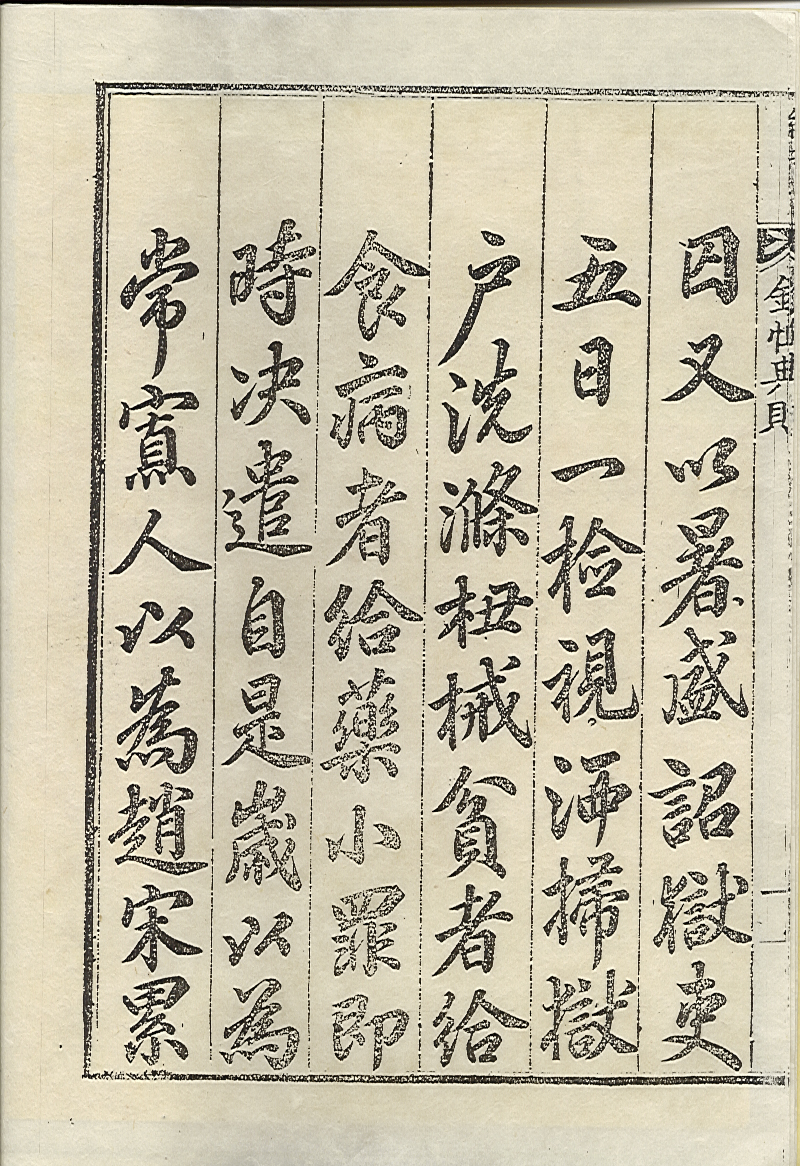 囚又以暑盛詔獄吏
五日一檢視洒掃獄
户洗滌杻械貧者給
食病者給藥小罪即
時决遣自是歲以為
常寘人以為趙宋累